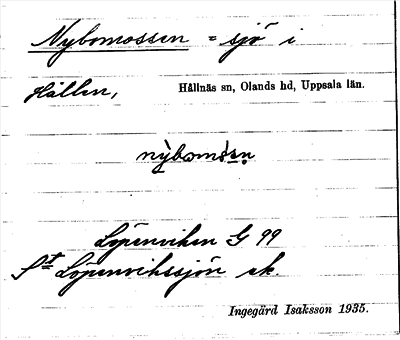 Nybomossen = sjö i
Hållen,
Hållnäs sn, Olands hd, Uppsala län.
nỳbomósen
Löpenviken G 99
St Löpenvikssjön ek.
Ingegärd Isaksson 1935.